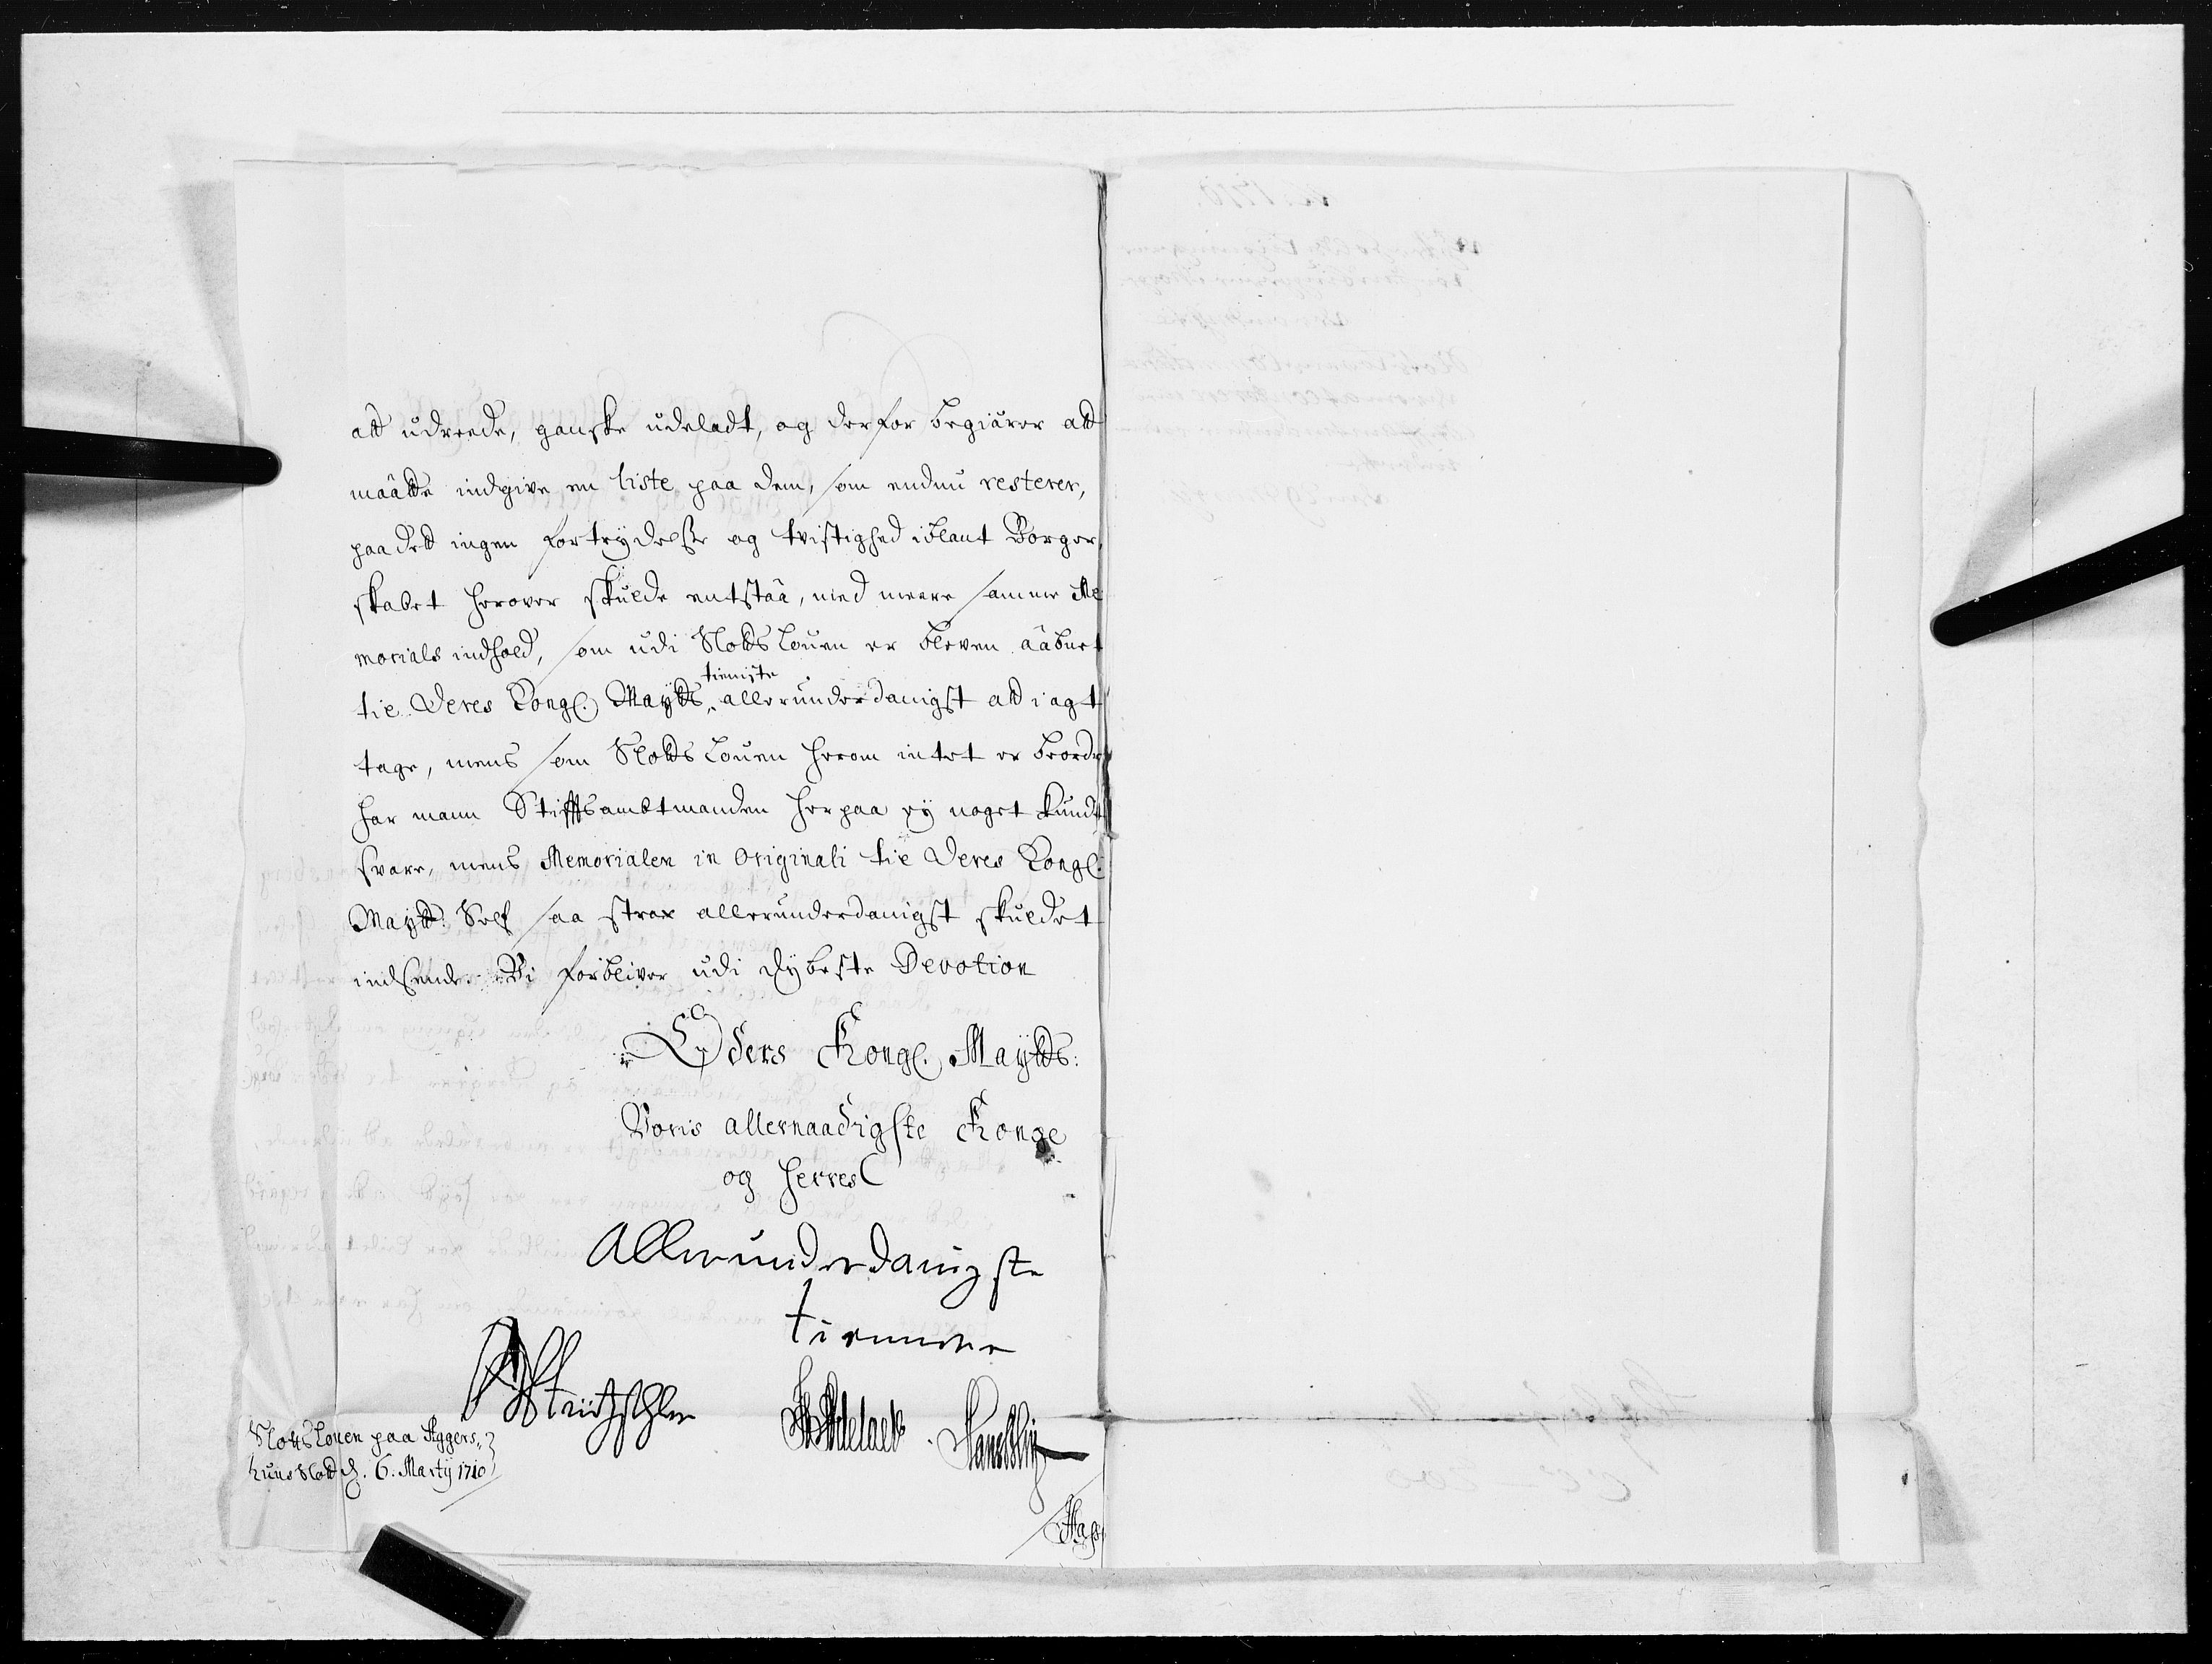 att udreede, ganske udeladt, og derfor begiærer att
maatte indgive en liste paa dem, som endnu resterer,
paa dett ingen fortrydelße og tvistighed iblant Borger,
skabet herover skulde entstaa, med meere samme Me
morials indhold, som udi Slotts Louen er bleven aabnet
til Deres Kongl. Maytts tieniste allerunderdanigst att i agt
tage, mens som Slotts Louen herom intet er beordr
har mann Stifftsambtmanden her paa ey noget kundt
svare, mens Memorialen in Originali til Deres Kongl.
Maytt: Self saa strax allerunderdanigst skuldet
indsende. Vi forbliver udi dybeste Devotion
Eders Kongl. Maytts:
Voris allernaadigste Konge
og Herres
Allerunderdanigste
tiennere
Slotts Louen paa Aggers,,
huus Slott d. 6. Martij 1710